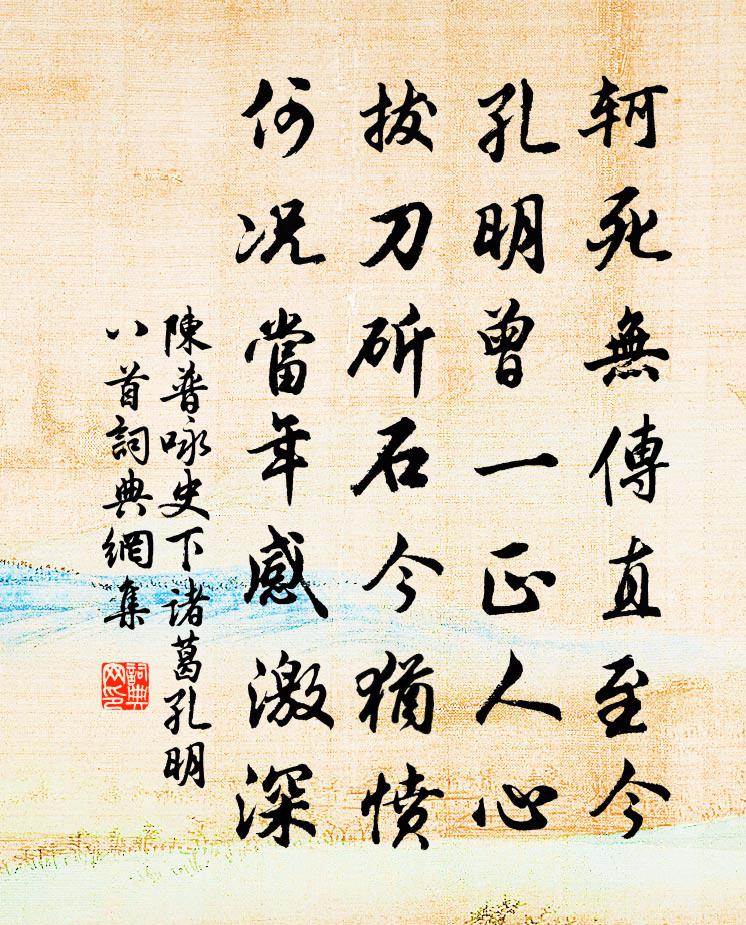 軻死無傳直至今
孔明曾一正人心
拔刀斫石今猶憤
何况當年感激深
陳普咏史下諸葛孔明
八首詞典網集
詞典
网印